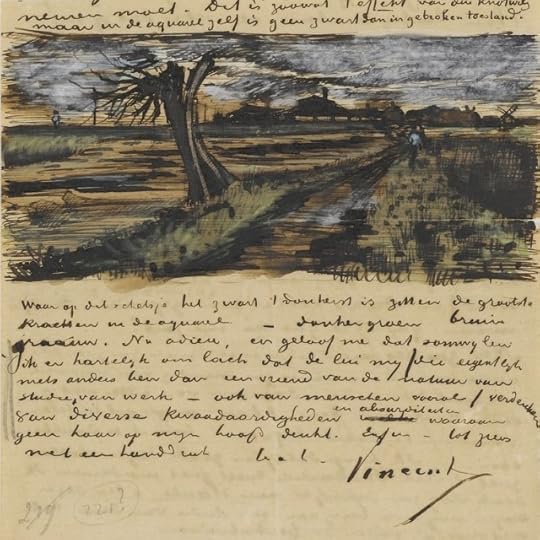 nemen moet. Dit is zoowat 't effekt van die knotwilg
maar in de aquarel zelf is geen zwart dan in gebroken toestand.
Waar op dit schetsje het zwart 't donkerst is zitten de grootste
krachten in de aquarel – donkergroen bruin
graauw. Nu adieu, en geloof me dat somwylen
ik er hartelyk om lach dat de lui my (die eigentlyk
niets anders ben dan een vriend van de natuur van
studie van werk – ook van menschen vooral) verdenken
van diverse kwaadaardigheden en absurditeiten waaraan
geen haar op myn hoofd denkt. Enfin – tot ziens
met een handdruk
Vincent